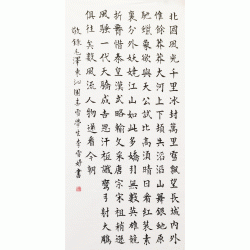 北國風光千里冰封萬里雪飄望長城內外
惟餘莽莽大河上下頓失滔滔山舞銀蛇原
馳蠟象欲與天公試比高須晴日看紅裝素
裹分外妖嬈江山如此多嬌引無數英雄競
折腰惜秦皇漢武略輸文采唐宗宋祖稍遜
風騷一代天驕成吉思汗祗識彎弓射大鵰
俱往矣數風流人物還看今朝
敬錄毛澤東沁園春雪學生李雪書